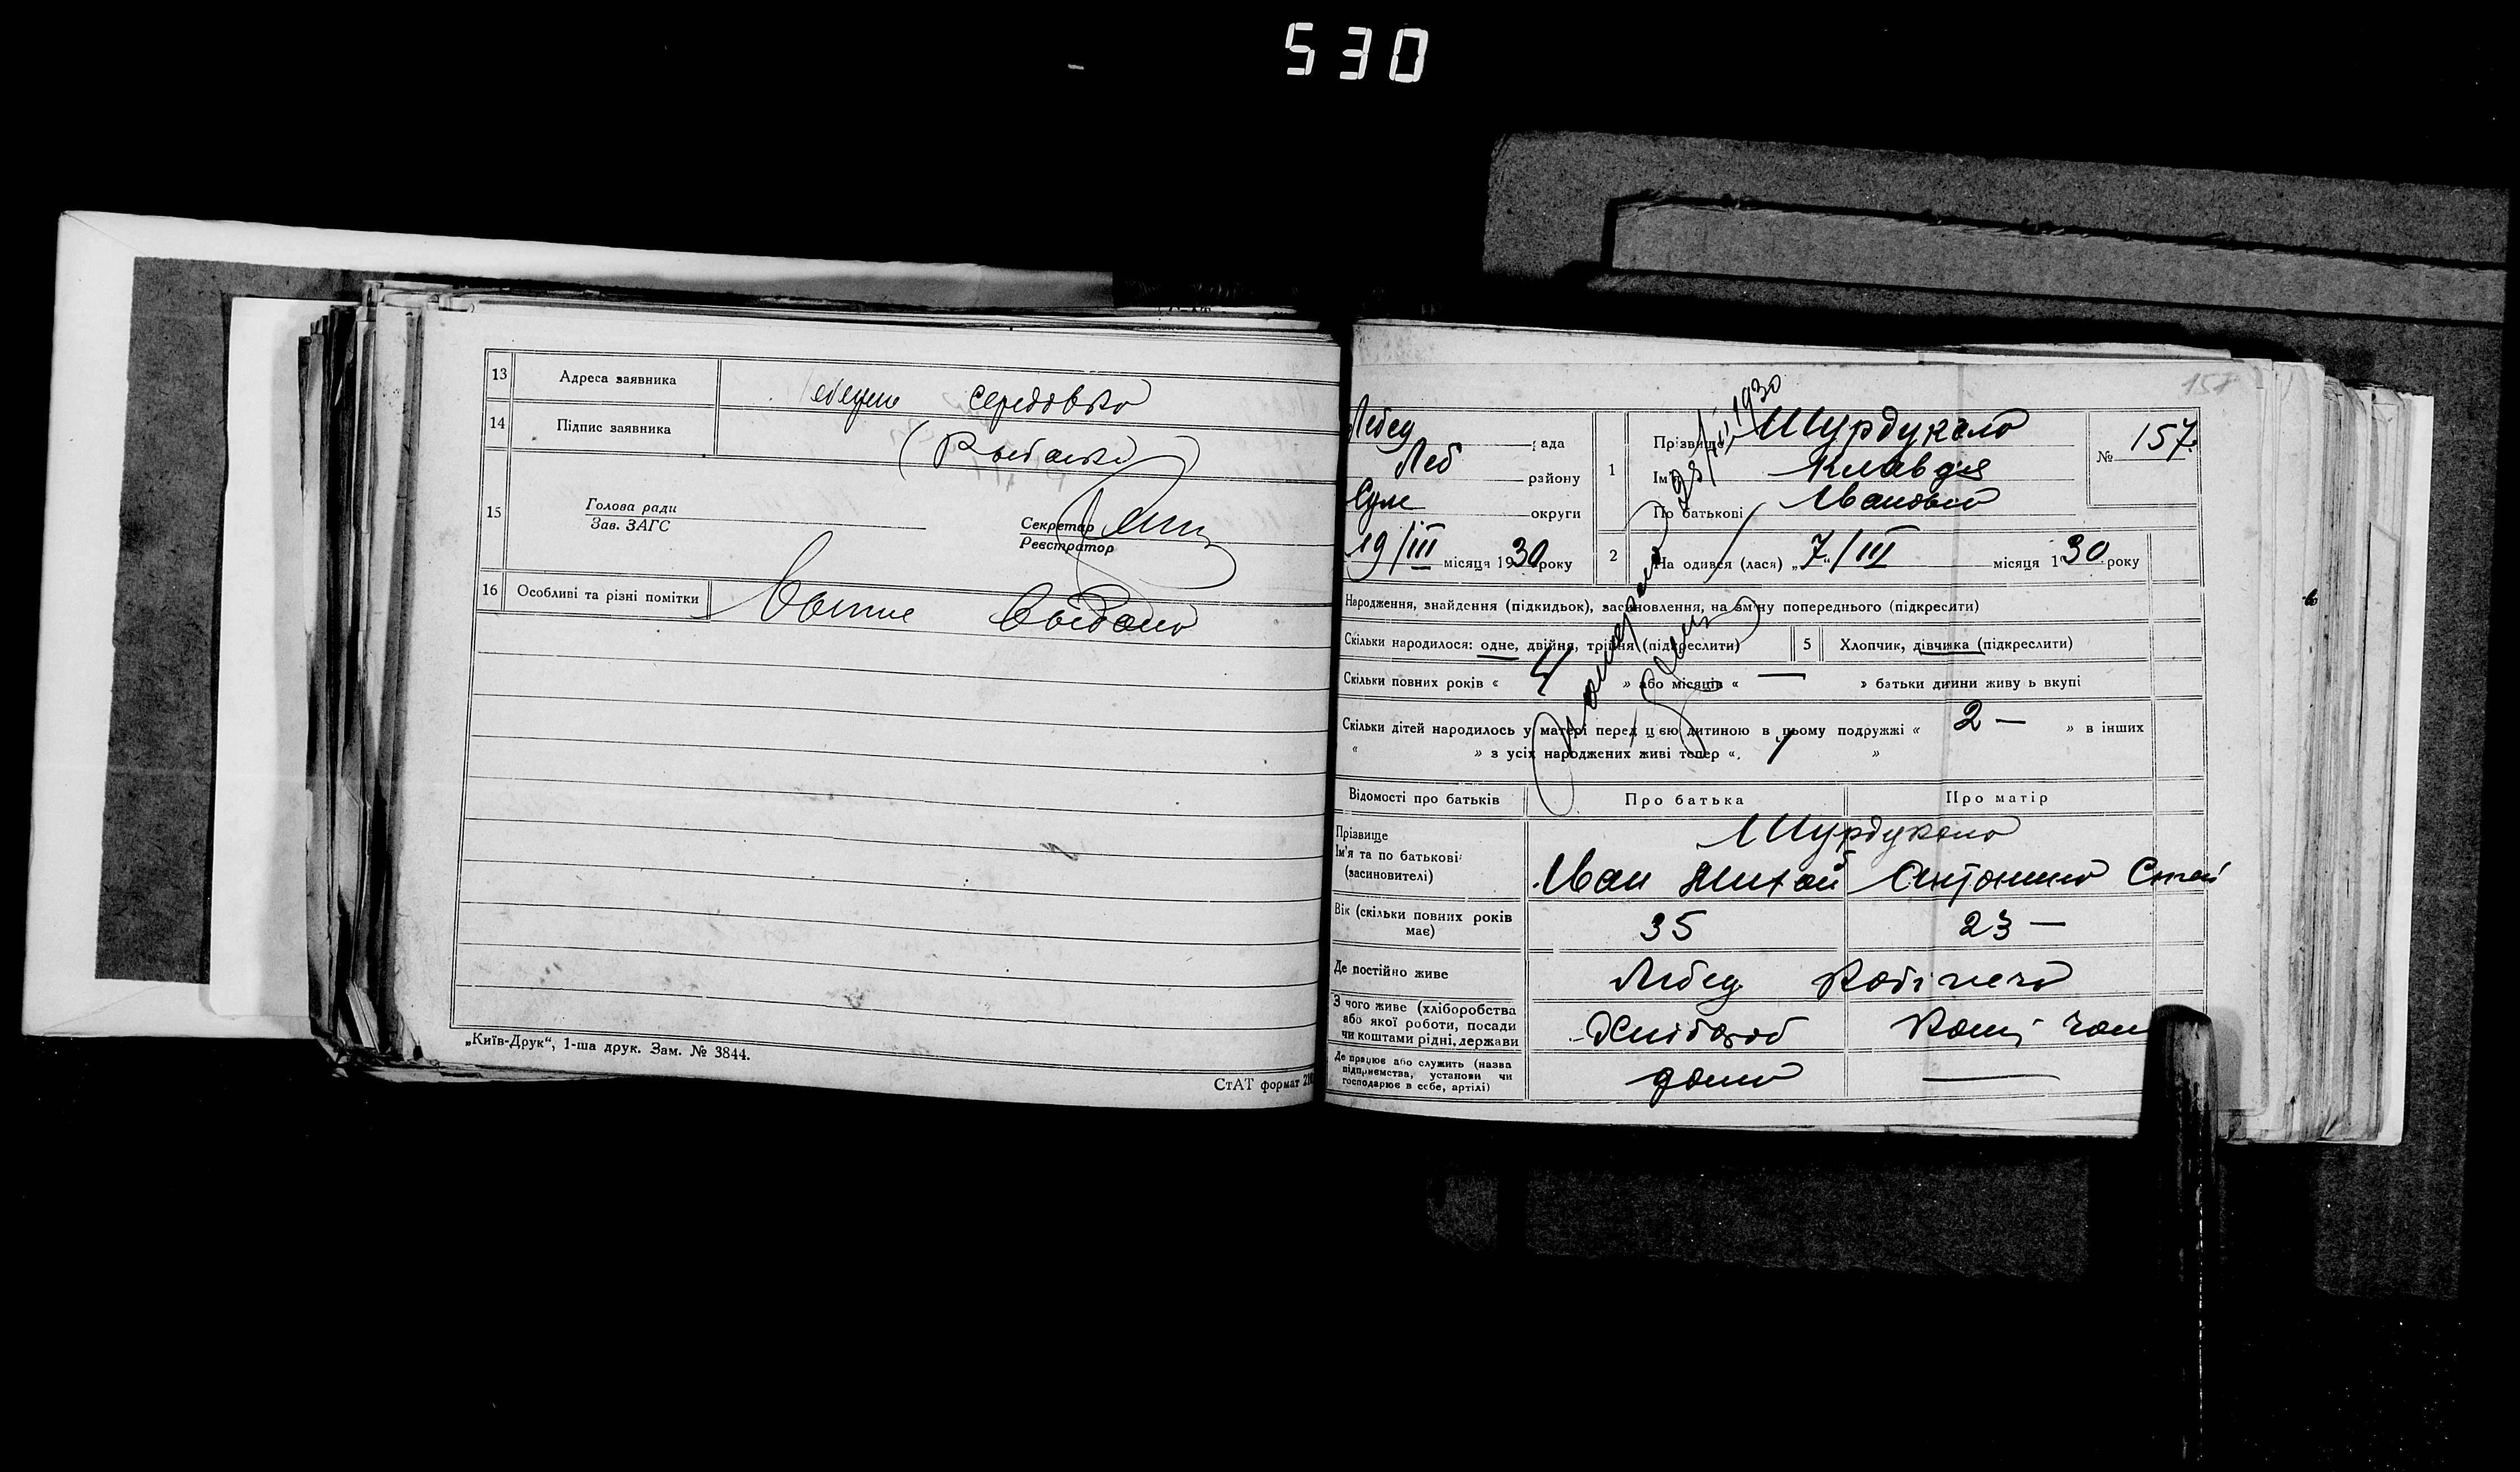 530
13 Адреса заявника середовка
14 Підпис заявника
15 Голова ради
Зав. ЗАГС
Секретар
Реєстратор
16 Особливі та різні помітки Видано
„Київ-Друк“, 1-ша друк. Зам. № 3844.
СтАТ формат 210
157
28/III 1930
Лебед рада
Леб району
Сум округи
19/III місяця 1930 року
1 Прізвище Шурдукало
Ім'я Клавдия
По батькові Ивановна
№ 157.
2 Народився (лася) „7“/III місяця 130 року
Народження, знайдення (підкидьок), засиновлення, на зміну попереднього (підкреслити)
Скільки народилося: одне, двійня, трійня (підкреслити) 5 Хлопчик, дівчинка (підкреслити)
Скільки повних років « 4 » або місяців « — » батьки дитини живуть вкупі
Скільки дітей народилось у матері перед цією дитиною в цьому подружжі « 2 — » в інших
« » з усіх народжених живі тепер « 1 »
Відомості про батьків Про батька Про матір
Прізвище Шурдукало
Ім'я та по батькові Иван Михай Антонина
(засиновителі)
Вік (скільки повних років має) 35 23 —
Де постійно живе Лебед
З чого живе (хліборобства або якої роботи, посади чи коштами рідні, держави Хлібороб
Де працює або служить (назва підприємства, установи чи господарює в себе, артілі) дома —